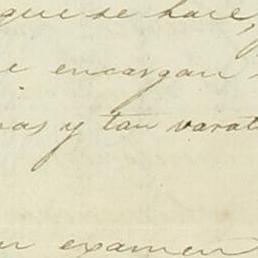 que se hace,
e encargan
as y tan varat
un examen